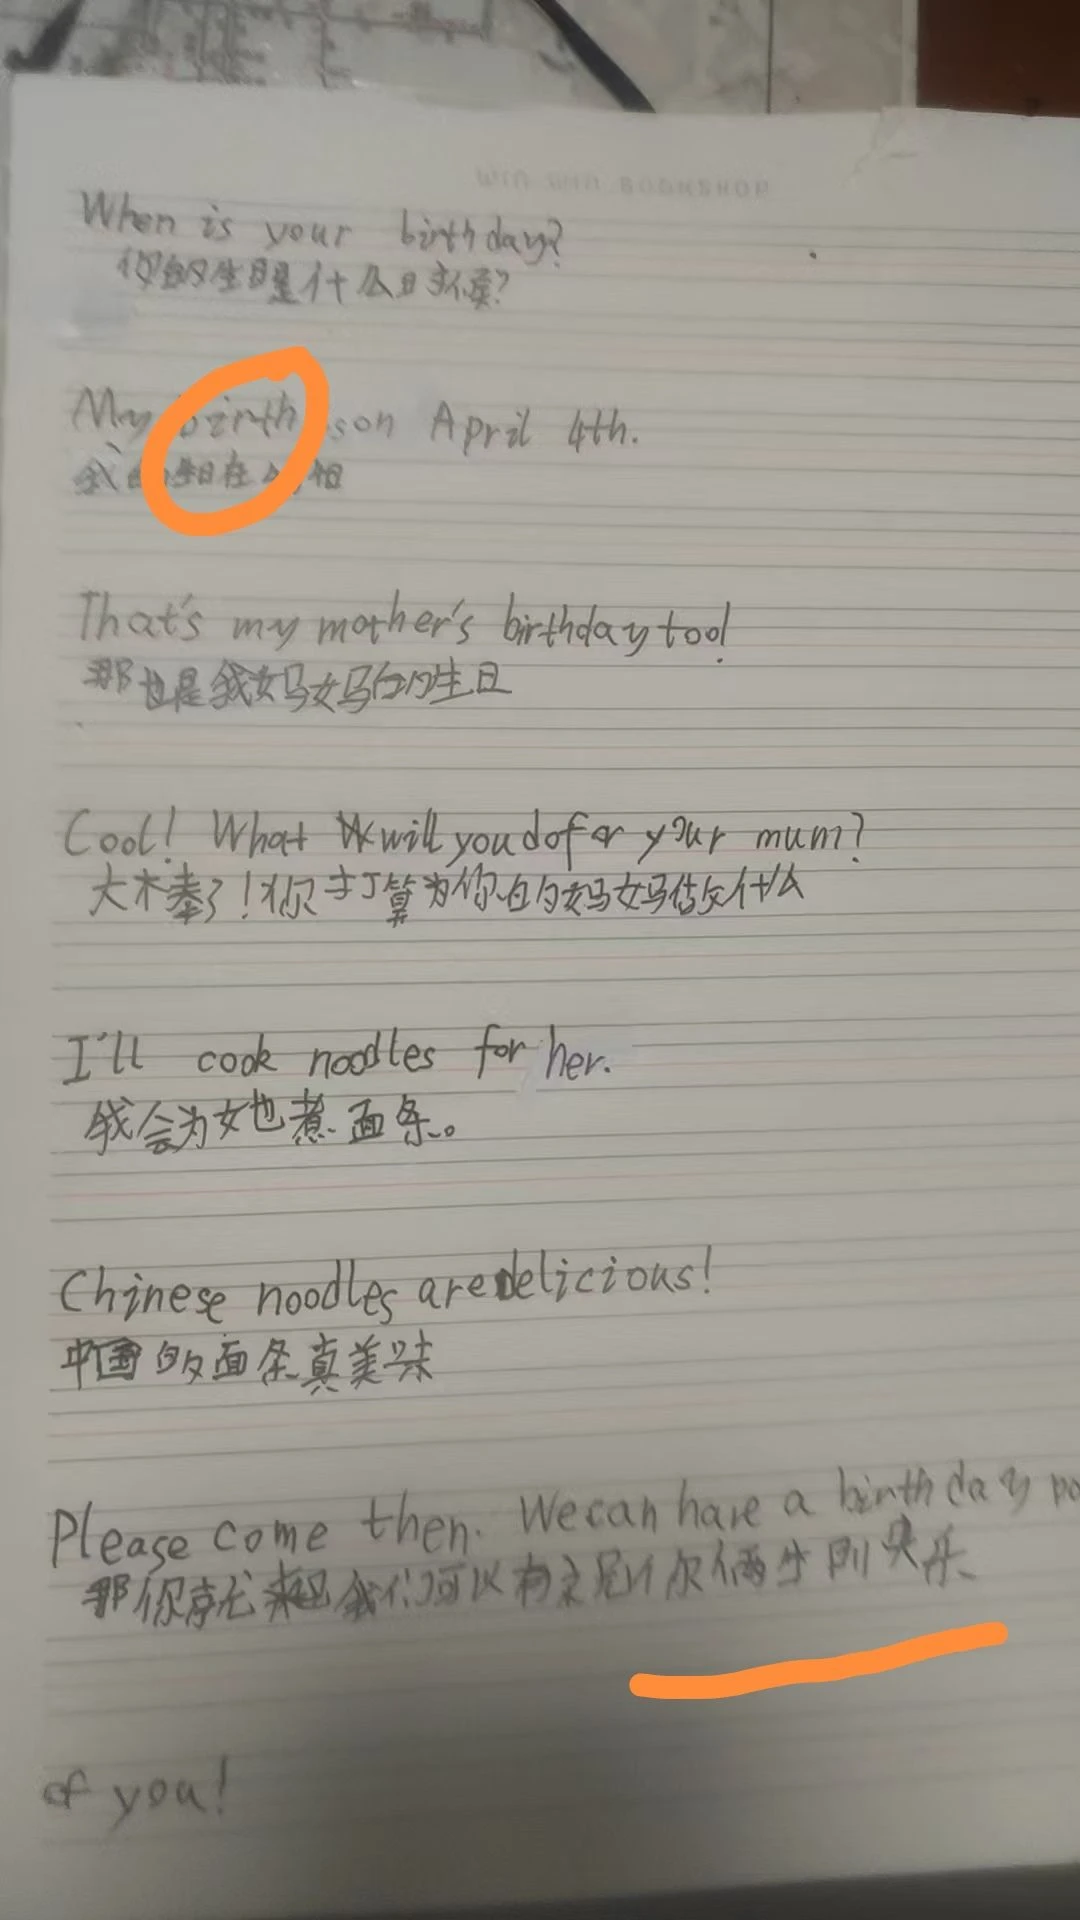 WIN WIN BOOKSHOP
When is your birthday?
你的生日是什么时候?
My birth is on April 4th.
我的生日在4月
That's my mother's birthday too!
那也是我妈妈的生日
Cool! What will you do for your mum?
太棒了!你打算为你的妈妈做什么
I'll cook noodles for her.
我会为她煮面条。
Chinese noodles are delicious!
中国的面条真美味
Please come then. We can have a birthday
那你就来吧我们可以 你俩生 快乐
of you!